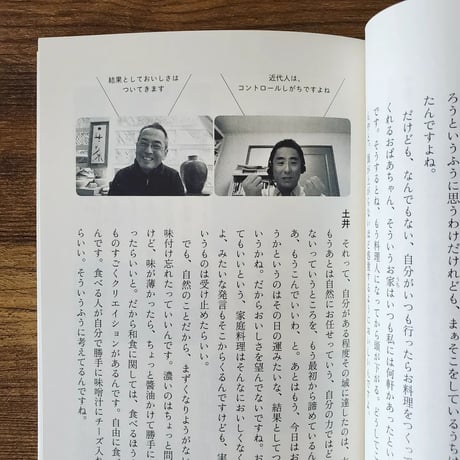 ろうというふうに思うわけだけれども、まぁそこをしているうちは
たんですよね。
だけども、なんでもない、自分がいつも行ったらお料理をつくっ
くれるおばあちゃん、そういうお家はいつも私には何軒かあった
です。そうするとね、もう料理人になってから頭が下がる。
近代人は、
コントロールしがちですよね
結果としておいしさは
ついてきます
土井 それって、自分がある程度その域に達したのは、
もうあとは自然にお任せっていう、自分の力ではど
ないっていうところを、もう最初から諦めているん
あ、もうこんでいいわ、と。あとはもう、今日はお
うかというのはその日の運みたいな、結果としてつ
いうかね。だからおいしさを望んでないですね。お
てもいいという、家庭料理はそんなにおいしくなく
よ、みたいな発言もそこからくるんですけども、実
いうものは受け止めたらいい。
でも、自然のことだから、まずくなりようがな
味付け忘れたっていいんです。濃いのはちょっと問
けど、味が薄かったら、ちょっと醤油かけて勝手に
ったらいいと。だから和食に関しては、食べるほう
ものすごくクリエイションがあるんです。自由に食
んです。食べる人が自分で勝手に味噌汁にチーズ入
らいい。そういうふうに考えてるんです